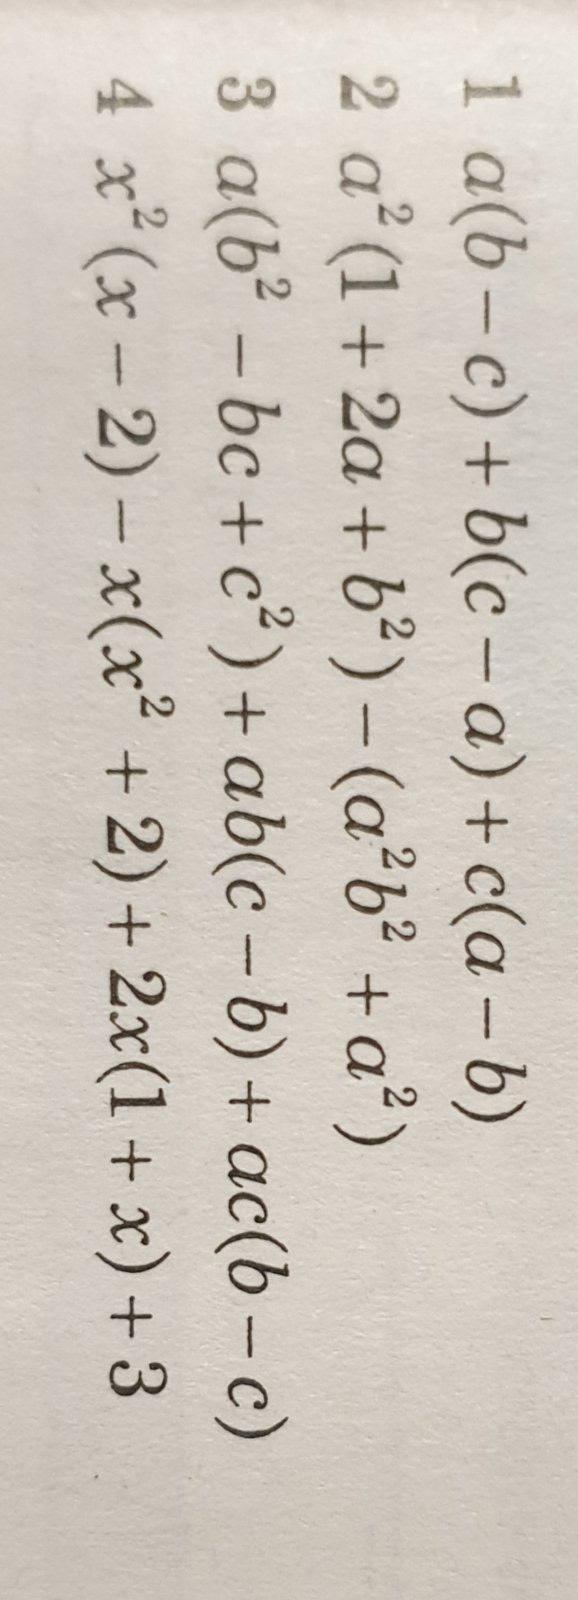 1 a(b − c) + b(c − a) + c(a − b)
2 a²(1 + 2a + b²) − (a²b² + a²)
3 a(b² − bc + c²) + ab(c − b) + ac(b − c)
4 x²(x − 2) − x(x² + 2) + 2x(1 + x) + 3